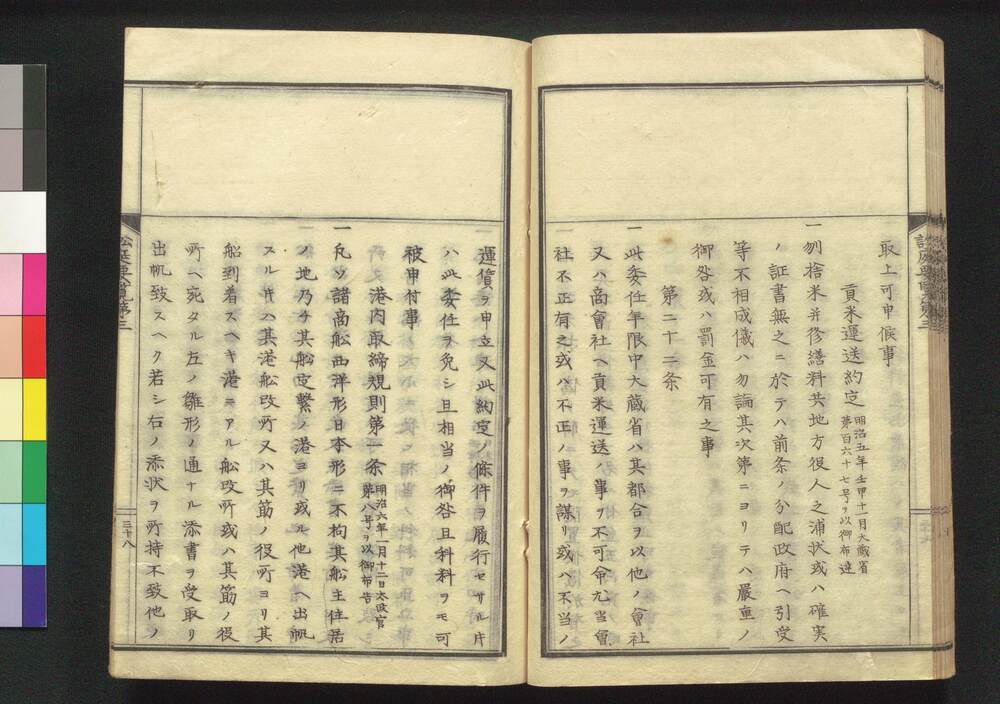 取上可申候事
貢米運送約定 明治五年壬申十一月大蔵省
第百六十七号ヲ以御布達
一刎捨米并修繕料共地方役人之浦状或ハ確実
ノ証書無之ニ於テハ前条ノ分配政府ヘ引受
等不相成儀ハ勿論其次第ニヨリテハ厳重ノ
御咎或ハ罰金可有之事
第二十二条
一此委任年限中大蔵省ハ其都合ヲ以他ノ會社
又ハ商會社ヘ貢米運送ノ事ヲ不可命尤當會
社不正有之或ハ不正ノ事ヲ謀リ或ハ不当ノ
運賃ヲ申立又此約定ノ條件ヲ履行セサル片
ハ此委任ヲ免シ且相当ノ御咎且科料ヲモ可
被申付事
港内取締規則第一条 明治六年一月十二日太政官
第八号ヲ以御布告
一凡ソ諸商舩西洋形日本形ニ不拘其舩主住居
ノ地乃チ其舩定繋ノ港ヨリ或ル他港ヘ出帆
スル片ハ其港舩改所又ハ其筋ノ役所ヨリ其
船到着スヘキ港ニアル舩改所或ハ其筋ノ役
所ヘ宛タル左ノ雛形ノ通ナル添書ヲ受取リ
出帆致スヘク若シ右ノ添状ヲ所持不致他ノ
三十八